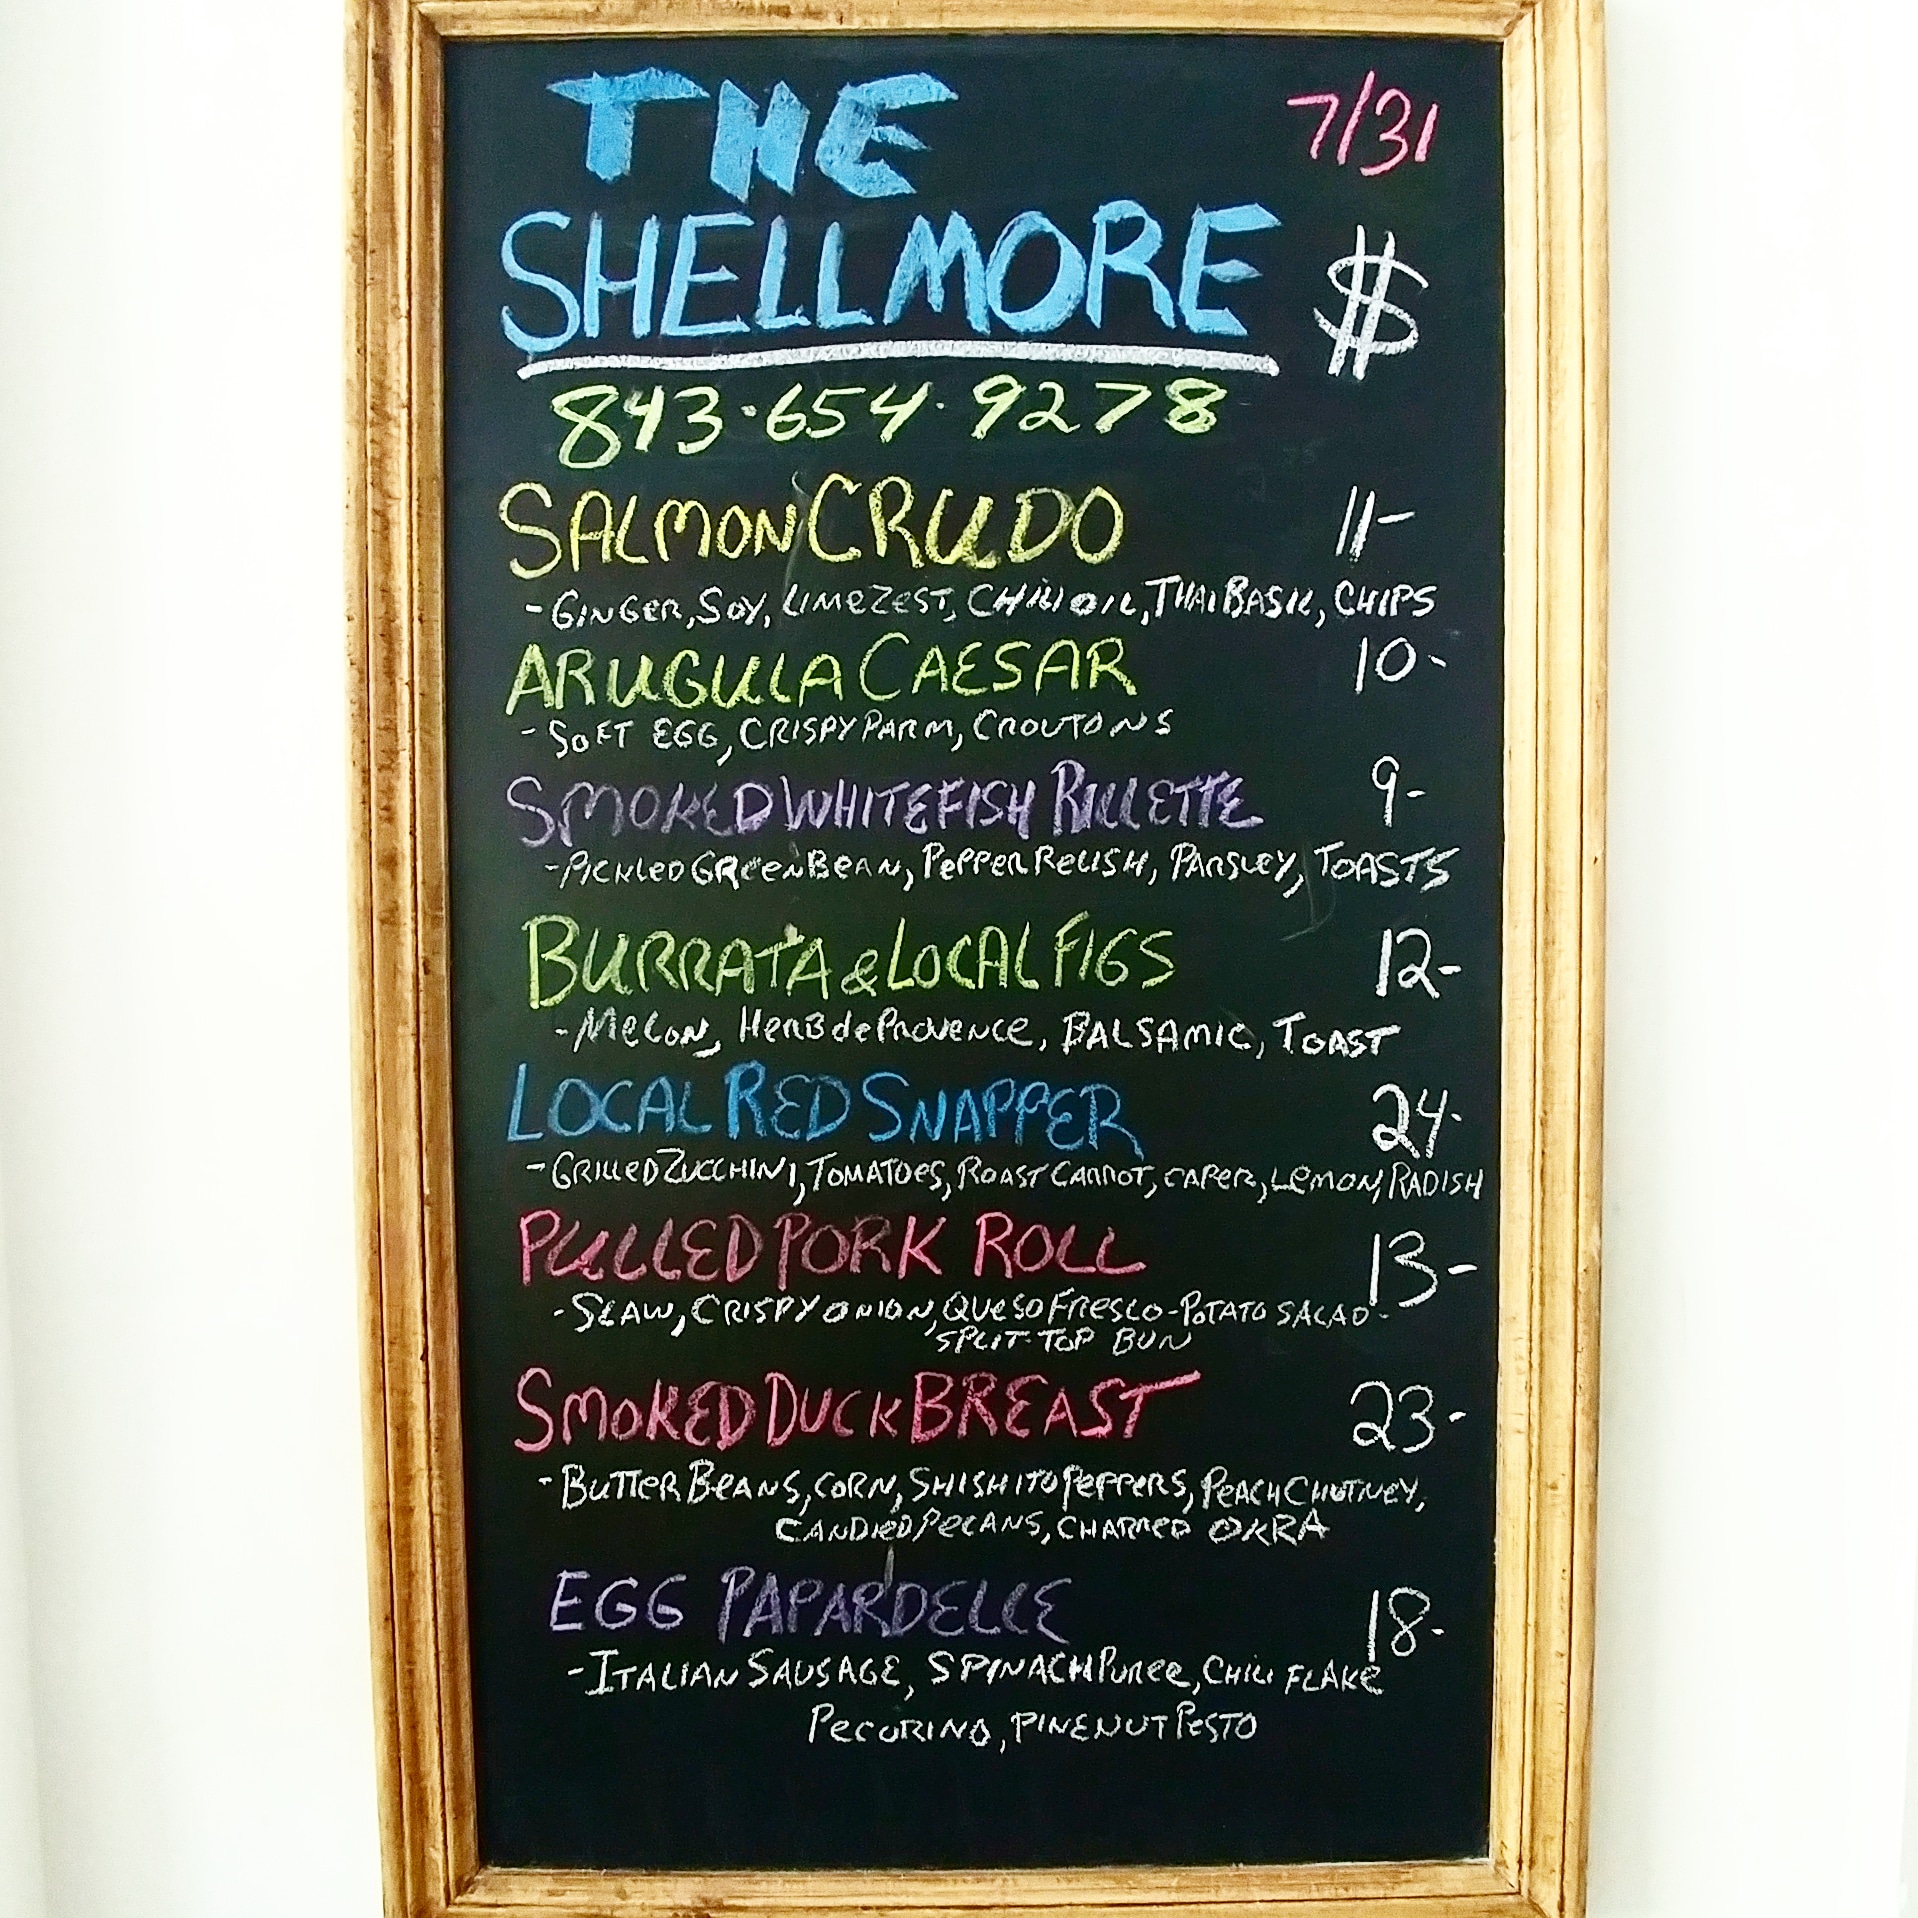 THE 7/31
SHELLMORE $
843·654·9278
SALMON CRUDO 11-
-GINGER, SOY, LIME ZEST, CHILI OIL, THAI BASIL, CHIPS
ARUGULA CAESAR 10-
-SOFT EGG, CRISPY PARM, CROUTONS
SMOKED WHITEFISH RILLETTE 9-
-PICKLED GREEN BEAN, PEPPER RELISH, PARSLEY, TOASTS
BURRATA & LOCAL FIGS 12-
-MELON, HERB de PROVENCE, BALSAMIC, TOAST
LOCAL RED SNAPPER 24-
-GRILLED ZUCCHINI, TOMATOES, ROAST CARROT, CAPER, LEMON, RADISH
PULLED PORK ROLL 13-
-SLAW, CRISPY ONION, QUESO FRESCO-POTATO SALAD-
SPLIT-TOP BUN
SMOKED DUCK BREAST 23-
-BUTTER BEANS, CORN, SHISHITO PEPPERS, PEACH CHUTNEY,
CANDIED PECANS, CHARRED OKRA
EGG PAPARDELLE 18-
-ITALIAN SAUSAGE, SPINACH PUREE, CHILI FLAKE
PECORINO, PINENUT PESTO